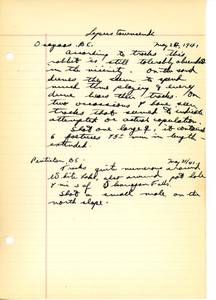 Lepus townsendii
Osoyoos B.C. May 20, 1941
According to tracks this
rabbit is still tolerably abundant
in the vicinity. On the sand
dunes they seem to spend
much time playing & every
dune bears their tracks. On
two occasions I have seen
tracks that seemed to
attempted or actual copulation.
Shot one large ♀, it contained
6 foetuses 75± mm in length
extended.
Penticton, B.C. May 21/41
Tracks quite numerous around
White Lake, also around pot hole
4 mi S of Okanagan Falls.
Shot a small male on the
north slope.